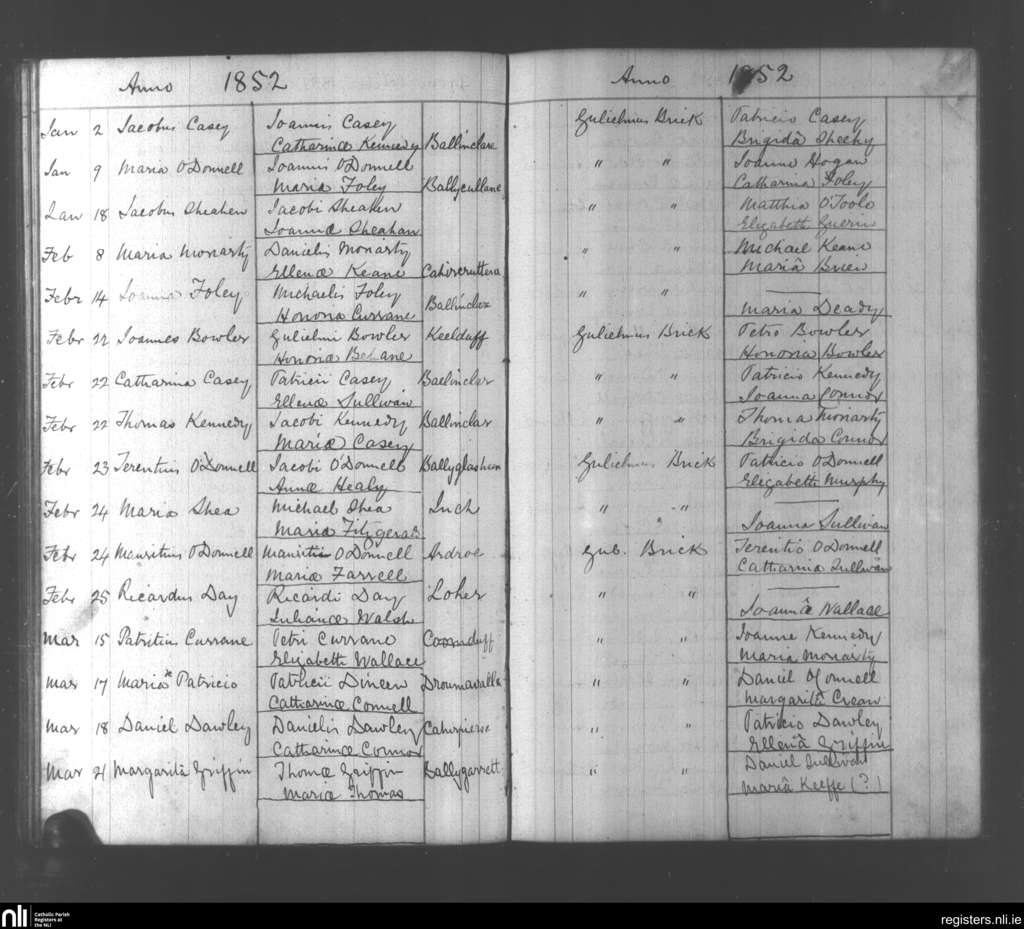 Anno 1852
Jan 2 Jacobus Casey Joannis Casey
Catharinæ Kennedy Ballinclare
Jan 9 Maria O'Donnell Joannis O'Donnell
Maria Foley Ballycullane
Jan 18 Jacobus Sheahen Jacobi Sheahen
Joannæ Sheahan
Feb 8 Maria Moriarty Danielis Moriarty
Ellenæ Keane Cahircruttera
Febr 14 Joanna Foley Michaelis Foley
Honora Currane Ballinclar
Febr 22 Joannes Bowler Gulielmi Bowler Keelduff
Honora Behane
Febr 22 Catharina Casey Patricii Casey Ballinclar
Ellenæ Sullivan
Febr 22 Thomas Kennedy Jacobi Kennedy Ballinclar
Mariæ Casey
Febr 23 Terentius O'Donnell Jacobi O'Donnell
Annæ Healy
Febr 24 Maria Shea Michael Shea Inch
Maria Fitzgerald
Febr 24 Mauritius O'Donnell Mauritii O'Donnell Ardroe
Mariæ Farrell
Febr 25 Ricardus Day Ricardi Day Loher
Julianæ Walsh
Mar 15 Patritius Currane Petri Currane
Elizabeth Wallace
Mar 17 Maria Patricio Patricii Dineen
Catharinæ Connell
Mar 18 Daniel Dawley Danielis Dawley
Catharinæ Connor
Mar 21 Margarita Griffin Thomæ Griffin Ballygarrett
Maria Thomas
Anno 1852
Gulielmus Brick Patricio Casey
Brigidâ Sheehy
" " Joanne Hogan
Catharina Foley
" " Matthia O'Toole
Elizabeth Guerin
" " Michael Keane
Mariâ Brien
" "
Maria Deady
Gulielmus Brick Petro Bowler
Honora Bowler
" " Patricio Kennedy
Joanna Connor
" " Thoma Moriarty
Brigida Connor
Gulielmus Brick Patricio O'Donnell
Elizabeth Murphy
" "
Joanna Sullivan
Gul. Brick Terentio O'Donnell
Catharina Sullivan
" "
Joannâ Wallace
" " Joanne Kennedy
Maria Moriarty
" " Daniel O'Connell
Margaritâ Crean
" " Patricio Dawley
Ellenâ Griffin
" " Daniel Sullivan
Mariâ Keeffe (?)
nli Catholic Parish
Registers at
the NLI
registers.nli.ie